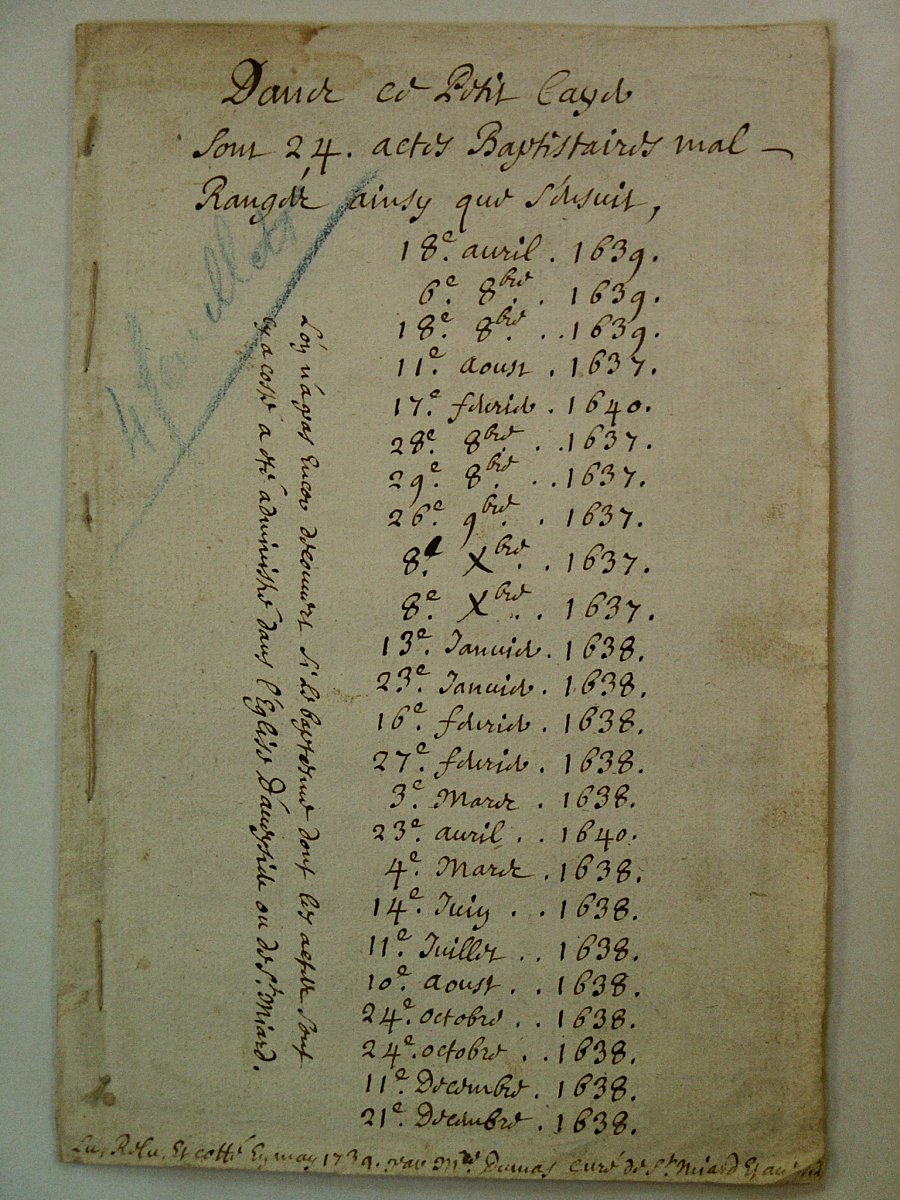 Dans ce Petit Cayé
Sont 24. actes Baptistaires mal -
Rangés ainsy que S'ensuit,
18e. auril . 1639.
6e. 8bre . 1639.
18e. 8bre . . 1639.
11e. Aoust . 1637.
17e. feurié . 1640.
28e. 8bre . . 1637.
29e. 8bre . . 1637.
26e. 9bre . . 1637.
8e. Xbre . . 1637.
8e. Xbre . . 1637.
13e. Ianuié . 1638.
23e. Ianuié . 1638.
16e. feurié . 1638.
27e. feurié . 1638.
3e. Mars . 1638.
23e. auril . . 1640.
4e. Mars . 1638.
14e. Iuin . . 1638.
11e. Iuillet . . 1638.
10e. Aoust . . 1638.
24e. octobre . . 1638.
24e. octobre . . 1638.
11e. Decembre . 1638.
21e. Decembre . 1638.
L'on n'a pas encor découvert Si le baptesme dont les actes sont
cy a costé a été administré dans l'Église D'
ou de St. Miard.
4 feuillets
Lu, Relu, Et cotté En may 1739. par Mre. Dumas curé de St. Miard Et